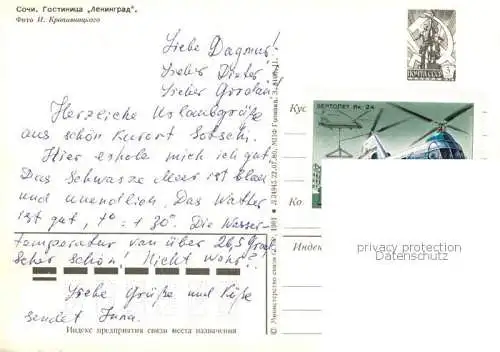 Сочи. Гостиница „Ленинград".
Фото И. Кропивницкого
Liebe Dagmar!
Lieber Dieter!
Lieber Gordan!
Herzeiche Urlaubsgrüße
aus schön Kurort Sotschi.
Hier erhole mich ich gut.
Das Schwarze Meer ist blau
und unendlich. Das Watter
ist gut, t° = + 30°. Die Wasser-
temperatur von über 26,5 Grad.
Sehr schön! Nicht wahr?
Liebe Grüße und Küße
sendet Inna.
Индекс предприятия связи места назначения
© Министерство связи
1981
ПОЧТА СССР
ВЕРТОЛЕТ Як-24
Кус
Ко
Индек
privacy protection
Datenschutz